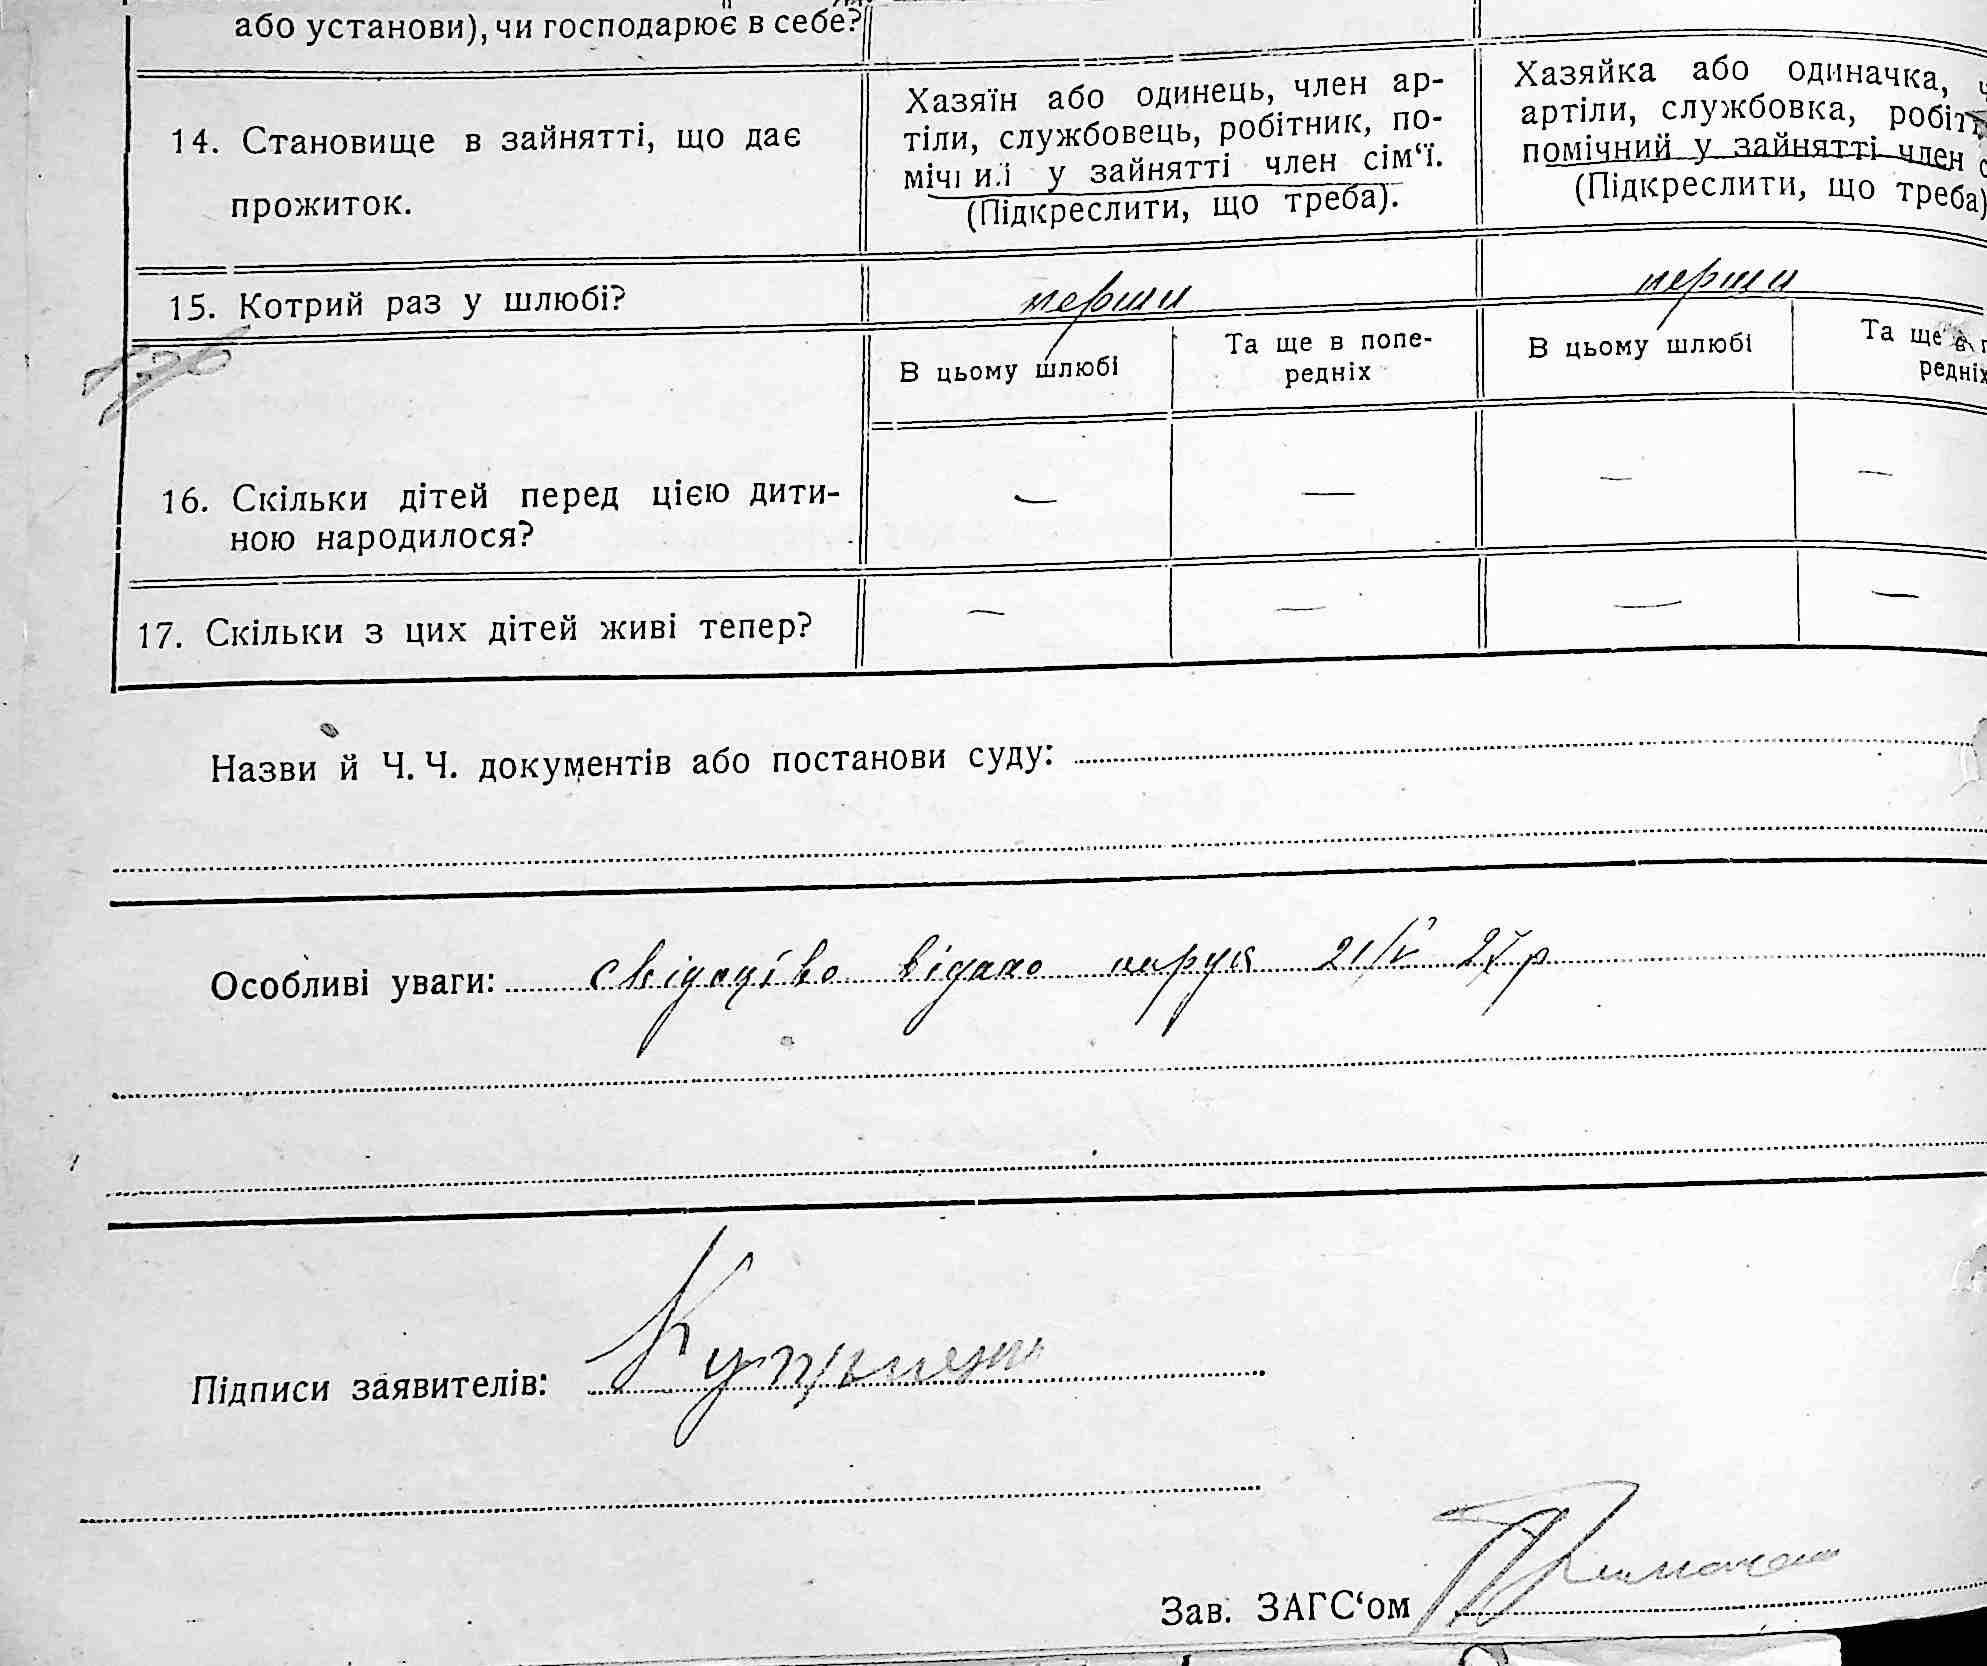 або установи), чи господарює в себе?
14. Становище в зайнятті, що дає
прожиток.
Хазяїн або одинець, член ар-
тіли, службовець, робітник, по-
мічний у зайнятті член сім‘ї.
(Підкреслити, що треба).
Хазяйка або одиначка,
артіли, службовка, робіт
помічний у зайнятті член
(Підкреслити, що треба)
15. Котрий раз у шлюбі?
перши
перши
В цьому шлюбі
Та ще в попе-
редніх
В цьому шлюбі
Та ще в п
редніх
16. Скільки дітей перед цією дити-
ною народилося?
— — — —
17. Скільки з цих дітей живі тепер?
— — — —
Назви й Ч. Ч. документів або постанови суду:
Особливі уваги: видано 21/V 27р
Підписи заявителів:
Зав. ЗАГС‘ом